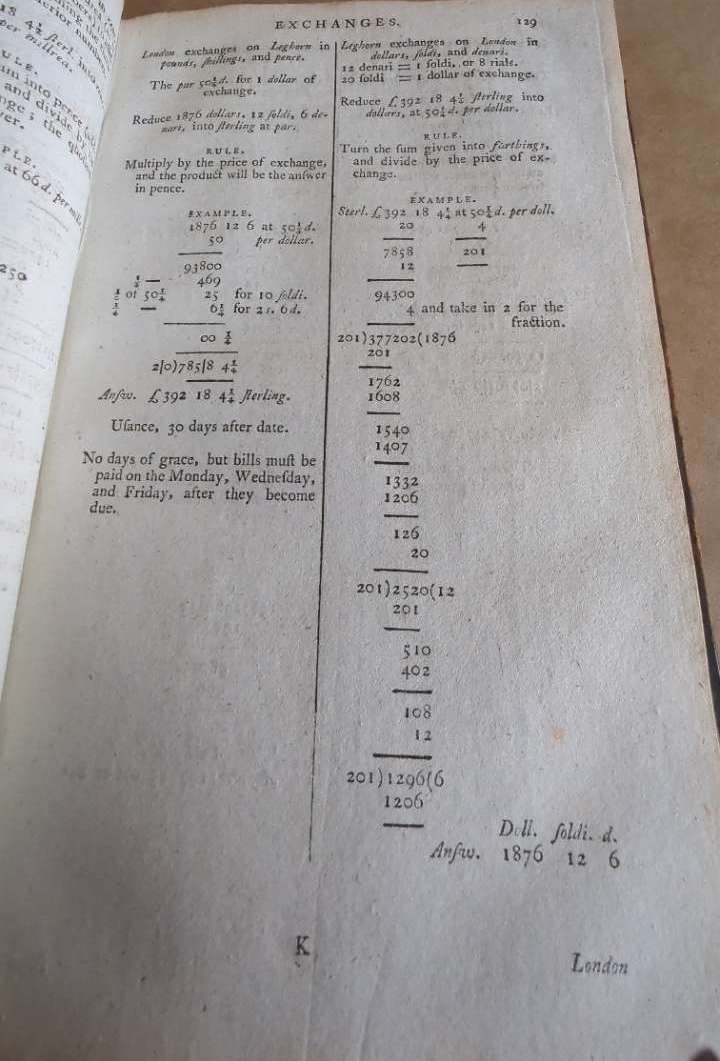 EXCHANGES.
129
London exchanges on Leghorn in
pounds, ſhillings, and pence.
The par 50¼d. for 1 dollar of
exchange.
Reduce 1876 dollars. 12 ſoldi, 6 de-
nari, into ſterling at par.
RULE.
Multiply by the price of exchange,
and the product will be the anſwer
in pence.
EXAMPLE.
1876 12 6 at 50¼d.
50 per dollar.
93800
¼ — 469
½ of 50¼ 25 for 10 ſoldi.
¼ — 6¼ for 2s. 6d.
00 ¼
2|0)785|8 4¼
Anſw. £392 18 4¼ ſterling.
Uſance, 30 days after date.
No days of grace, but bills muſt be
paid on the Monday, Wedneſday,
and Friday, after they become
due.
Leghorn exchanges on London in
dollars, ſoldi, and denari.
12 denari = 1 ſoldi, or 8 rials.
20 ſoldi = 1 dollar of exchange.
Reduce £392 18 4½ ſterling into
dollars, at 50¼d. per dollar.
RULE.
Turn the ſum given into farthings,
and divide by the price of ex-
change.
EXAMPLE.
Sterl. £392 18 4½ at 50¼d. per doll.
20 4
7858 201
12
94300
4 and take in 2 for the
fraction.
201)377202(1876
201
1762
1608
1540
1407
1332
1206
126
20
201)2520(12
201
510
402
108
12
201)1296(6
1206
Doll. ſoldi. d.
Anſw. 1876 12 6
K
London